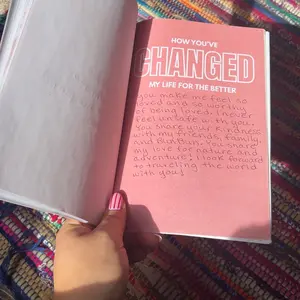 HOW YOU'VE
CHANGED
MY LIFE FOR THE BETTER
You make me feel so
loved and so worthy
of being loved. I never
feel unsafe with you.
You share your kindness
with my friends, family,
and BunBun. You share
my love for nature and
adventure! I look forward
to traveling the world
with you!